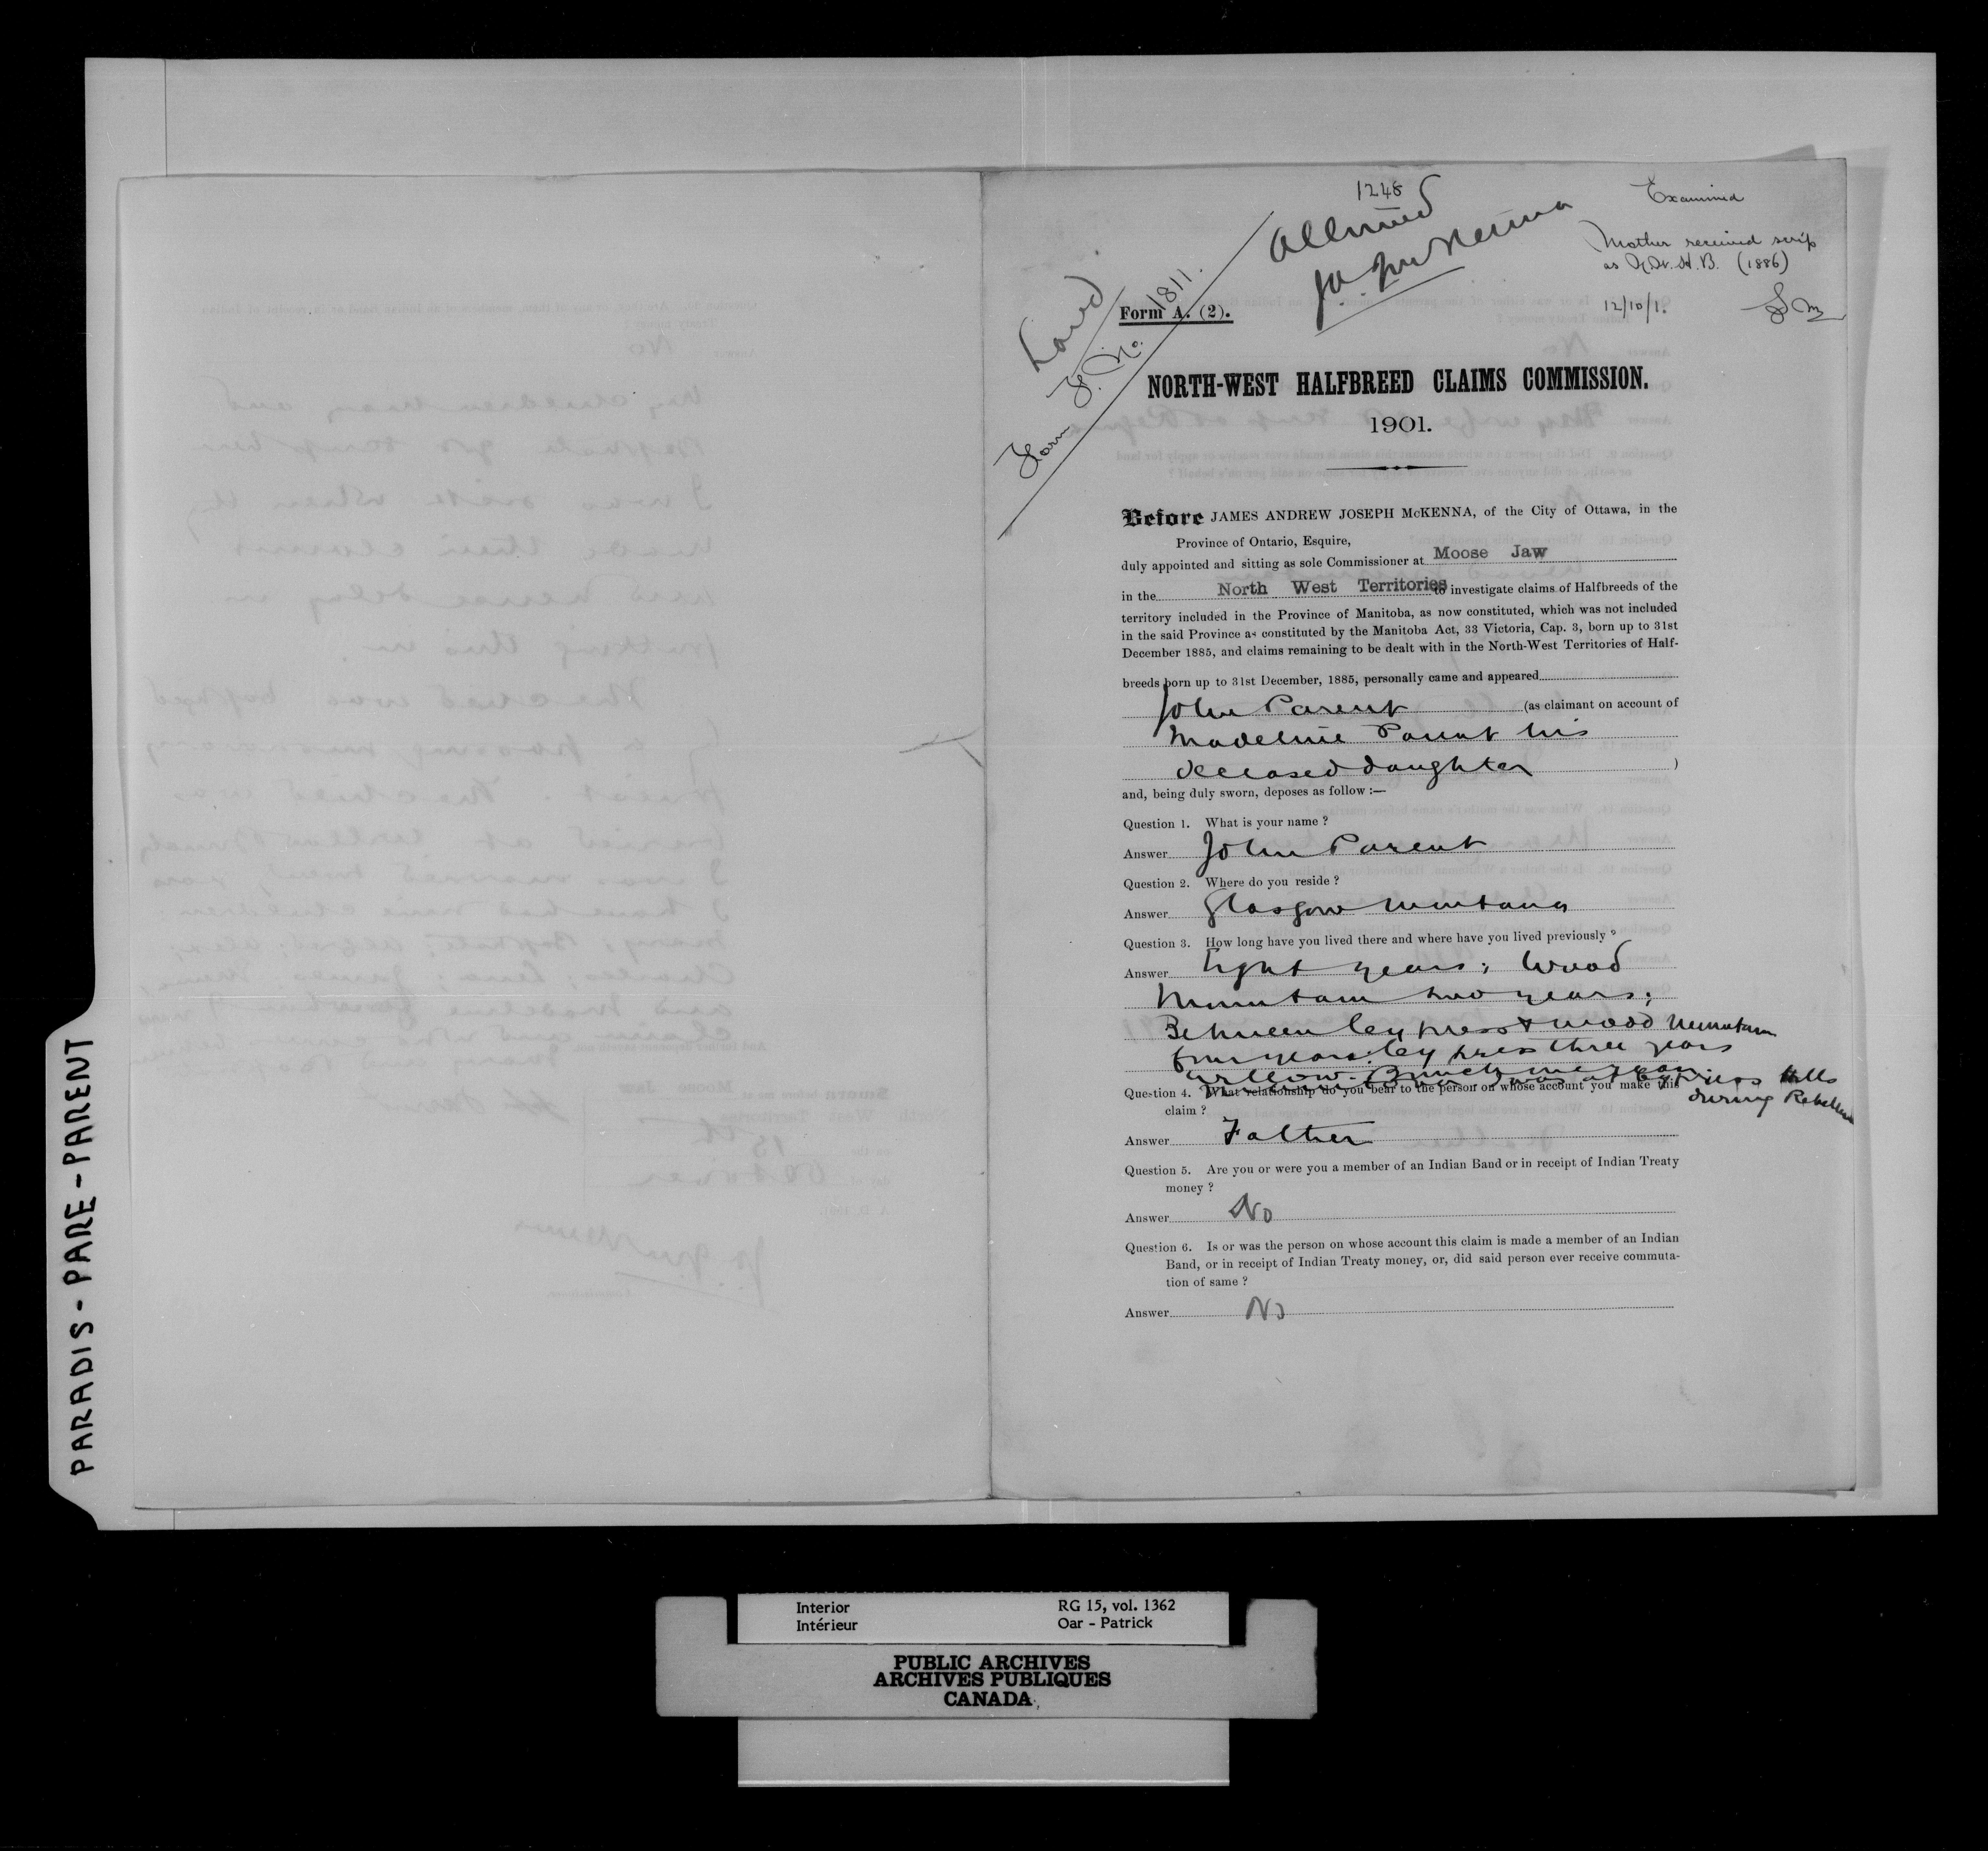 1248
Examined
Allowed
J.A.J. McKenna
Mother received scrip
as H.B. (1886)
12/10/1.
Land
Form F. No. 1811.
Form A. (2).
NORTH-WEST HALFBREED CLAIMS COMMISSION.
1901.
Before JAMES ANDREW JOSEPH McKENNA, of the City of Ottawa, in the
Province of Ontario, Esquire,
duly appointed and sitting as sole Commissioner at Moose Jaw
in the North West Territories to investigate claims of Halfbreeds of the
territory included in the Province of Manitoba, as now constituted, which was not included
in the said Province as constituted by the Manitoba Act, 33 Victoria, Cap. 3, born up to 31st
December 1885, and claims remaining to be dealt with in the North-West Territories of Half-
breeds born up to 31st December, 1885, personally came and appeared
John Parent (as claimant on account of
Madeline Parent his
deceased daughter )
and, being duly sworn, deposes as follow :—
Question 1. What is your name ?
Answer John Parent
Question 2. Where do you reside ?
Answer Glasgow Montana
Question 3. How long have you lived there and where have you lived previously ?
Answer Eight years; Wood
Mountain two years;
Between Cypress & Wood Mountain
four years; Cypress three years
Willow Bunch one year. I was at Cypress Hills
during Rebellion
Question 4. What relationship do you bear to the person on whose account you make this
claim ?
Answer Father
Question 5. Are you or were you a member of an Indian Band or in receipt of Indian Treaty
money ?
Answer No
Question 6. Is or was the person on whose account this claim is made a member of an Indian
Band, or in receipt of Indian Treaty money, or, did said person ever receive commuta-
tion of same ?
Answer No
PARADIS - PARE - PARENT
Interior
Intérieur
RG 15, vol. 1362
Oar - Patrick
PUBLIC ARCHIVES
ARCHIVES PUBLIQUES
CANADA